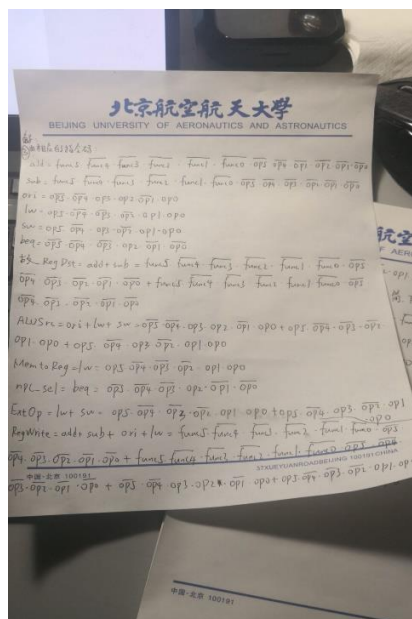 北京航空航天大學
BEIJING UNIVERSITY OF AERONAUTICS AND ASTRONAUTICS
add = func5 · \overline{func4} · \overline{func3} · \overline{func2} · \overline{func1} · \overline{func0} · \overline{op5} · \overline{op4} · \overline{op3} · \overline{op2} · \overline{op1} · \overline{op0}
sub = func5
ori = \overline{op5} · \overline{op4} · op3 · op2 · \overline{op1} · op0
lw = op5 · \overline{op4} · \overline{op3} · \overline{op2} · op1 · op0
sw = op5 · \overline{op4} · op3 · \overline{op2} · op1 · op0
beq = \overline{op5} · \overline{op4} · \overline{op3} · op2 · \overline{op1} · \overline{op0}
RegDst = add + sub = func5 · \overline{func4} · \overline{func3} · \overline{func2} · \overline{func1} · \overline{func0} · \overline{op5}
\overline{op4} · \overline{op3} · \overline{op2} · \overline{op1} · \overline{op0} + func5 \overline{func4} \overline{func3} \overline{func2} func1 \overline{func0} \overline{op5}
\overline{op4} · \overline{op3} · \overline{op2} · \overline{op1} · \overline{op0}
ALUSrc = ori + lw + sw = \overline{op5} · \overline{op4} · op3 · op2 · \overline{op1} · op0 + op5 · \overline{op4} · \overline{op3} · \overline{op2}
op1 · op0 + op5 · \overline{op4} · op3 · \overline{op2} · op1 · op0
MemtoReg = lw = op5 · \overline{op4} · \overline{op3} · \overline{op2} · op1 · op0
nPC_sel = beq = \overline{op5} · \overline{op4} · \overline{op3} · op2 · \overline{op1} · \overline{op0}
ExtOp = lw + sw = op5 · \overline{op4} · \overline{op3} · \overline{op2} · op1 · op0 + op5 · \overline{op4} · op3 · \overline{op2} · op1
op0
RegWrite = add + sub + ori + lw = func5 \overline{func4} · \overline{func3} · \overline{func2} · \overline{func1} · \overline{func0} · \overline{op5}
\overline{op4} · \overline{op3} · \overline{op2} · \overline{op1} · \overline{op0} + func5 · \overline{func4} · \overline{func3} · \overline{func2} · func1 · \overline{func0} · \overline{op5} · \overline{op4}
37XUEYUANROADBEIJING 100191 CHINA
中国·北京 100191
\overline{op3} · \overline{op2} · \overline{op1} · \overline{op0} + \overline{op5} · \overline{op4} · op3 · op2 · \overline{op1} · op0 + op5 · \overline{op4} · \overline{op3} · \overline{op2} · op1 · op
中国·北京 100191